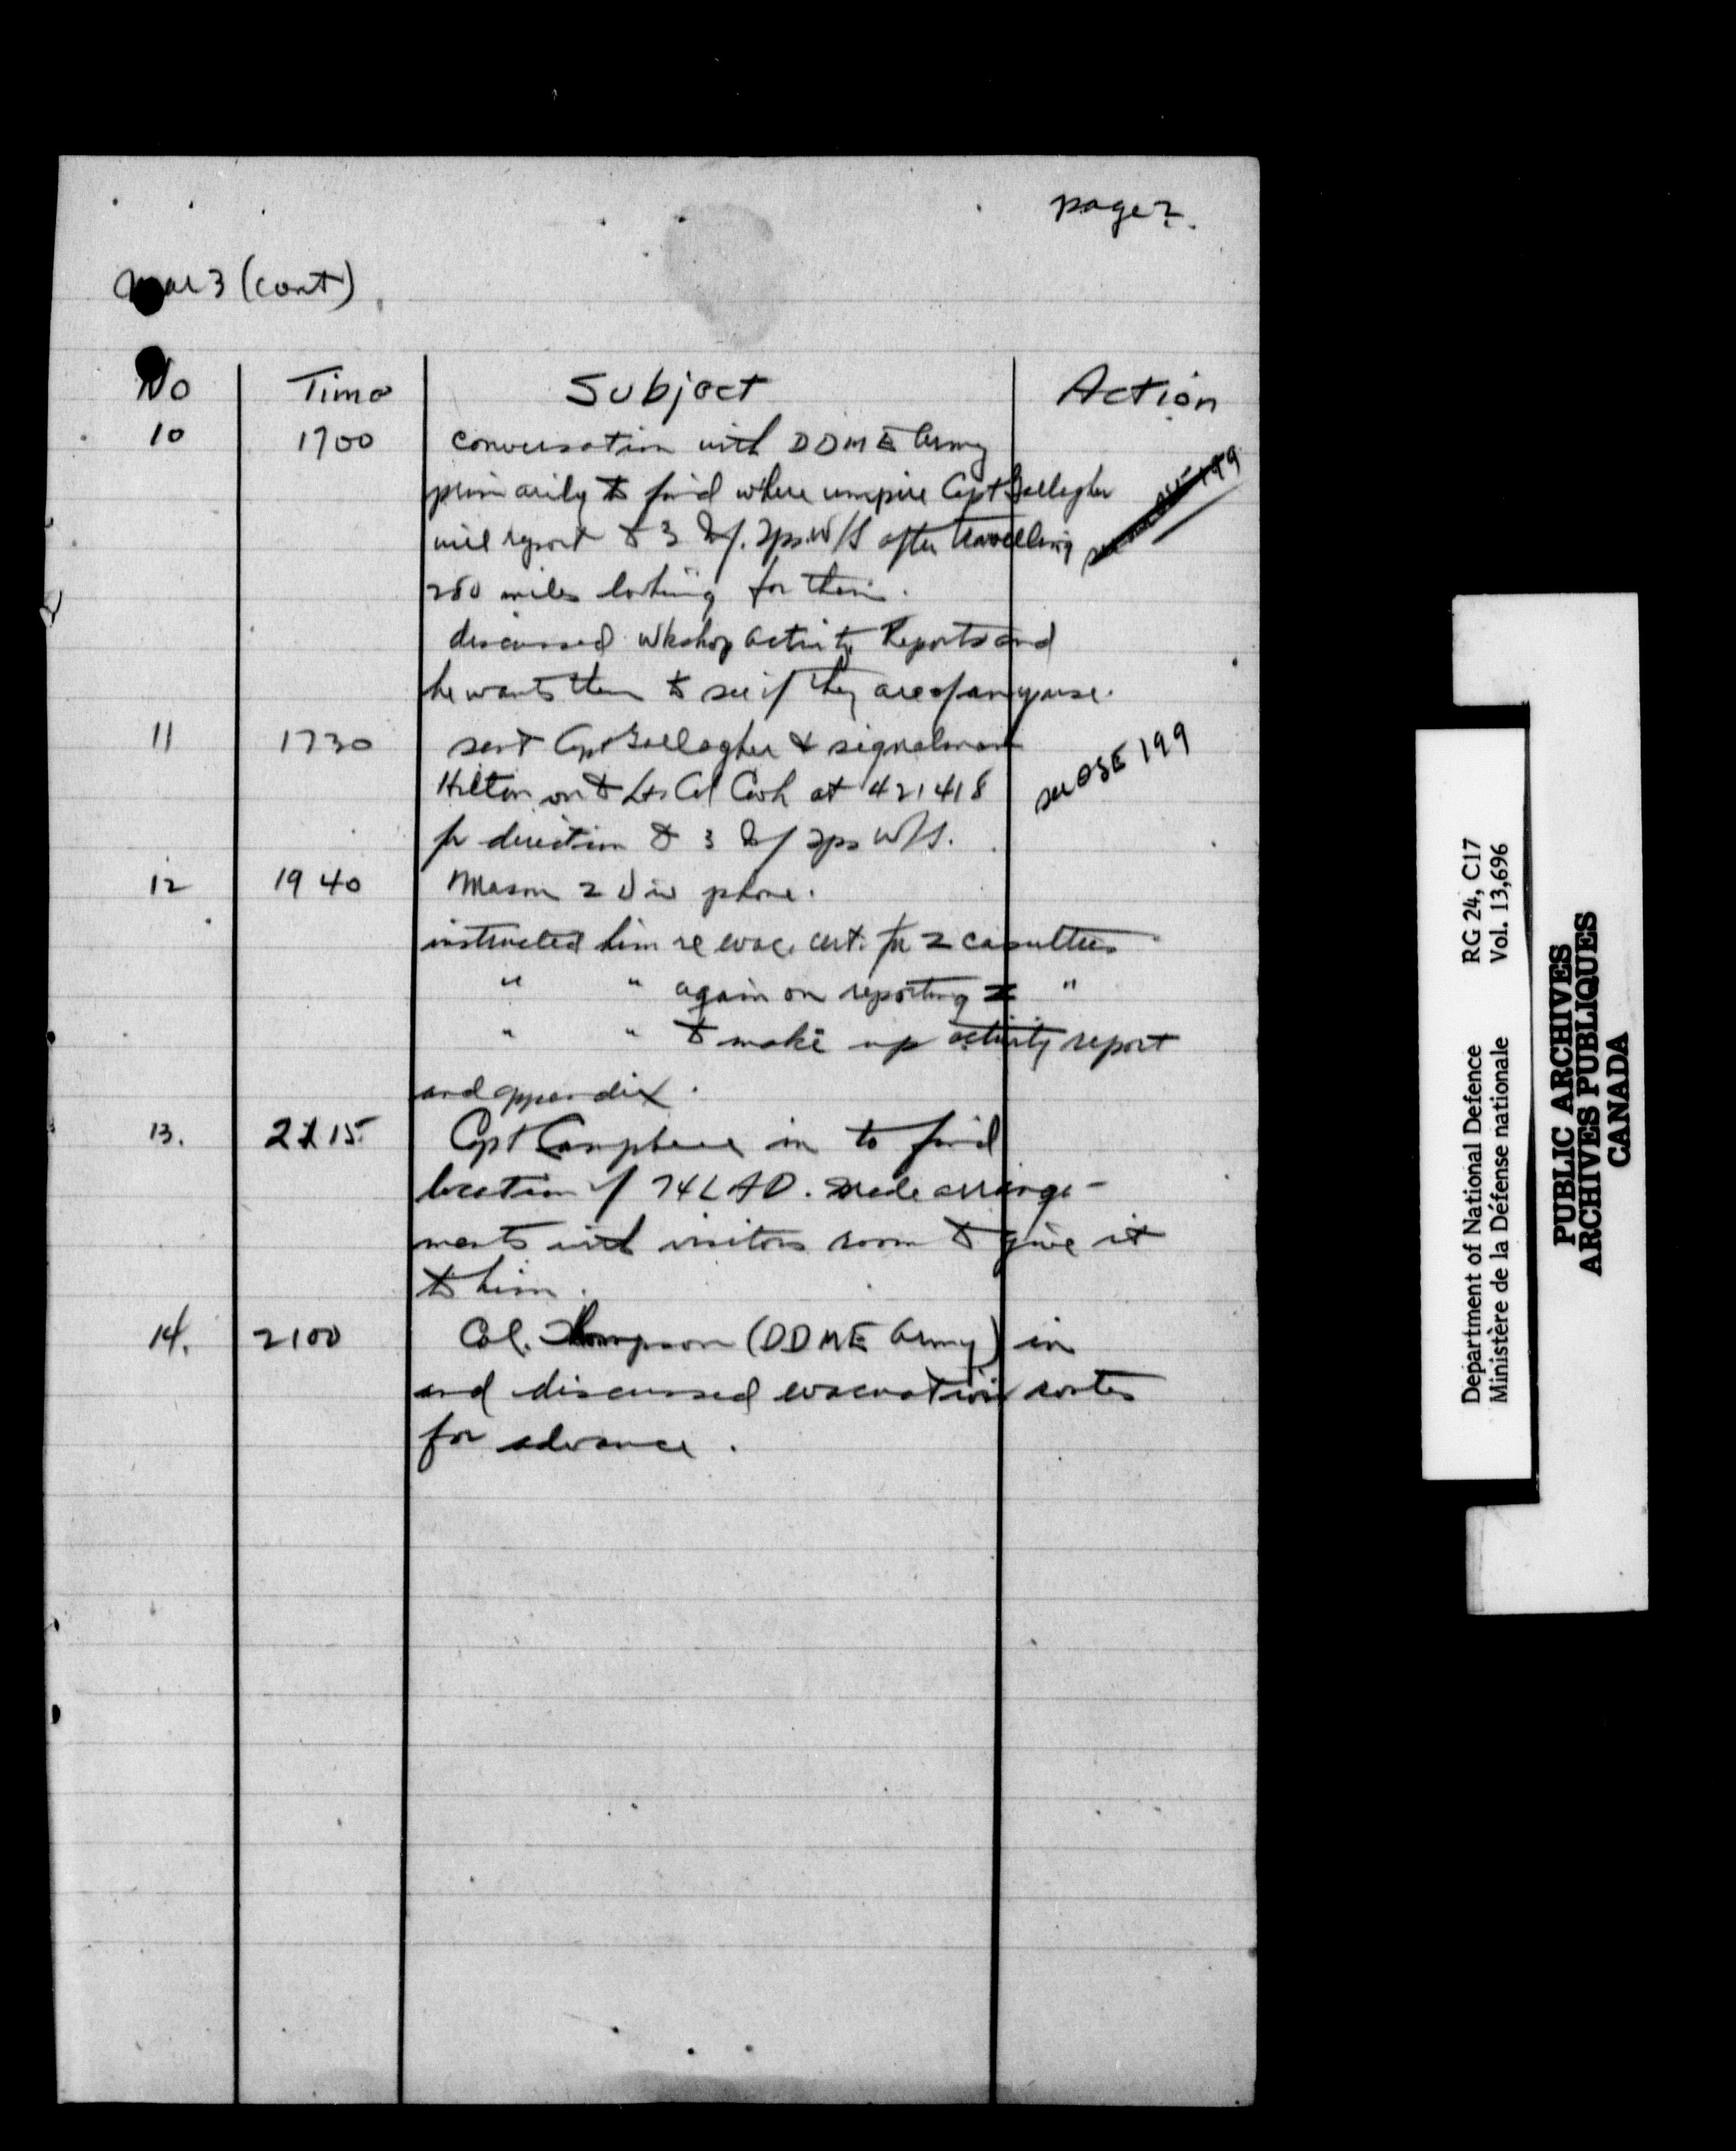 page 2.
Mar 3 (cont)
No Time Subject Action
10 1700 conversation with DDME Army
primarily to find where umpire Capt Gallagher
will report to 3 Inf. Tps. W/S after travelling
280 miles looking for them.
discussed Wkshop activity Reports and
he wants them to see if they are of any use.
11 1730 sent Capt Gallagher & signalman
Hilton on to Lt. Col Cook at 421418
for direction to 3 Inf Tps W/S.
see OSE 199
12 1940 Mason 2 Div phone.
instructed him re evac. cert. for 2 casulties
" " again on reporting "
" " to make up activity report
and appendix.
13. 2215 Capt Campbell in to find
location of 74 LAD. made arrange-
ments with visitors room to give it
to him.
14. 2100 Col. Thompson (DDME Army) in
and discussed evacuation routes
for advance.
Department of National Defence RG 24, C17
Ministère de la Défense nationale Vol. 13,696
PUBLIC ARCHIVES
ARCHIVES PUBLIQUES
CANADA